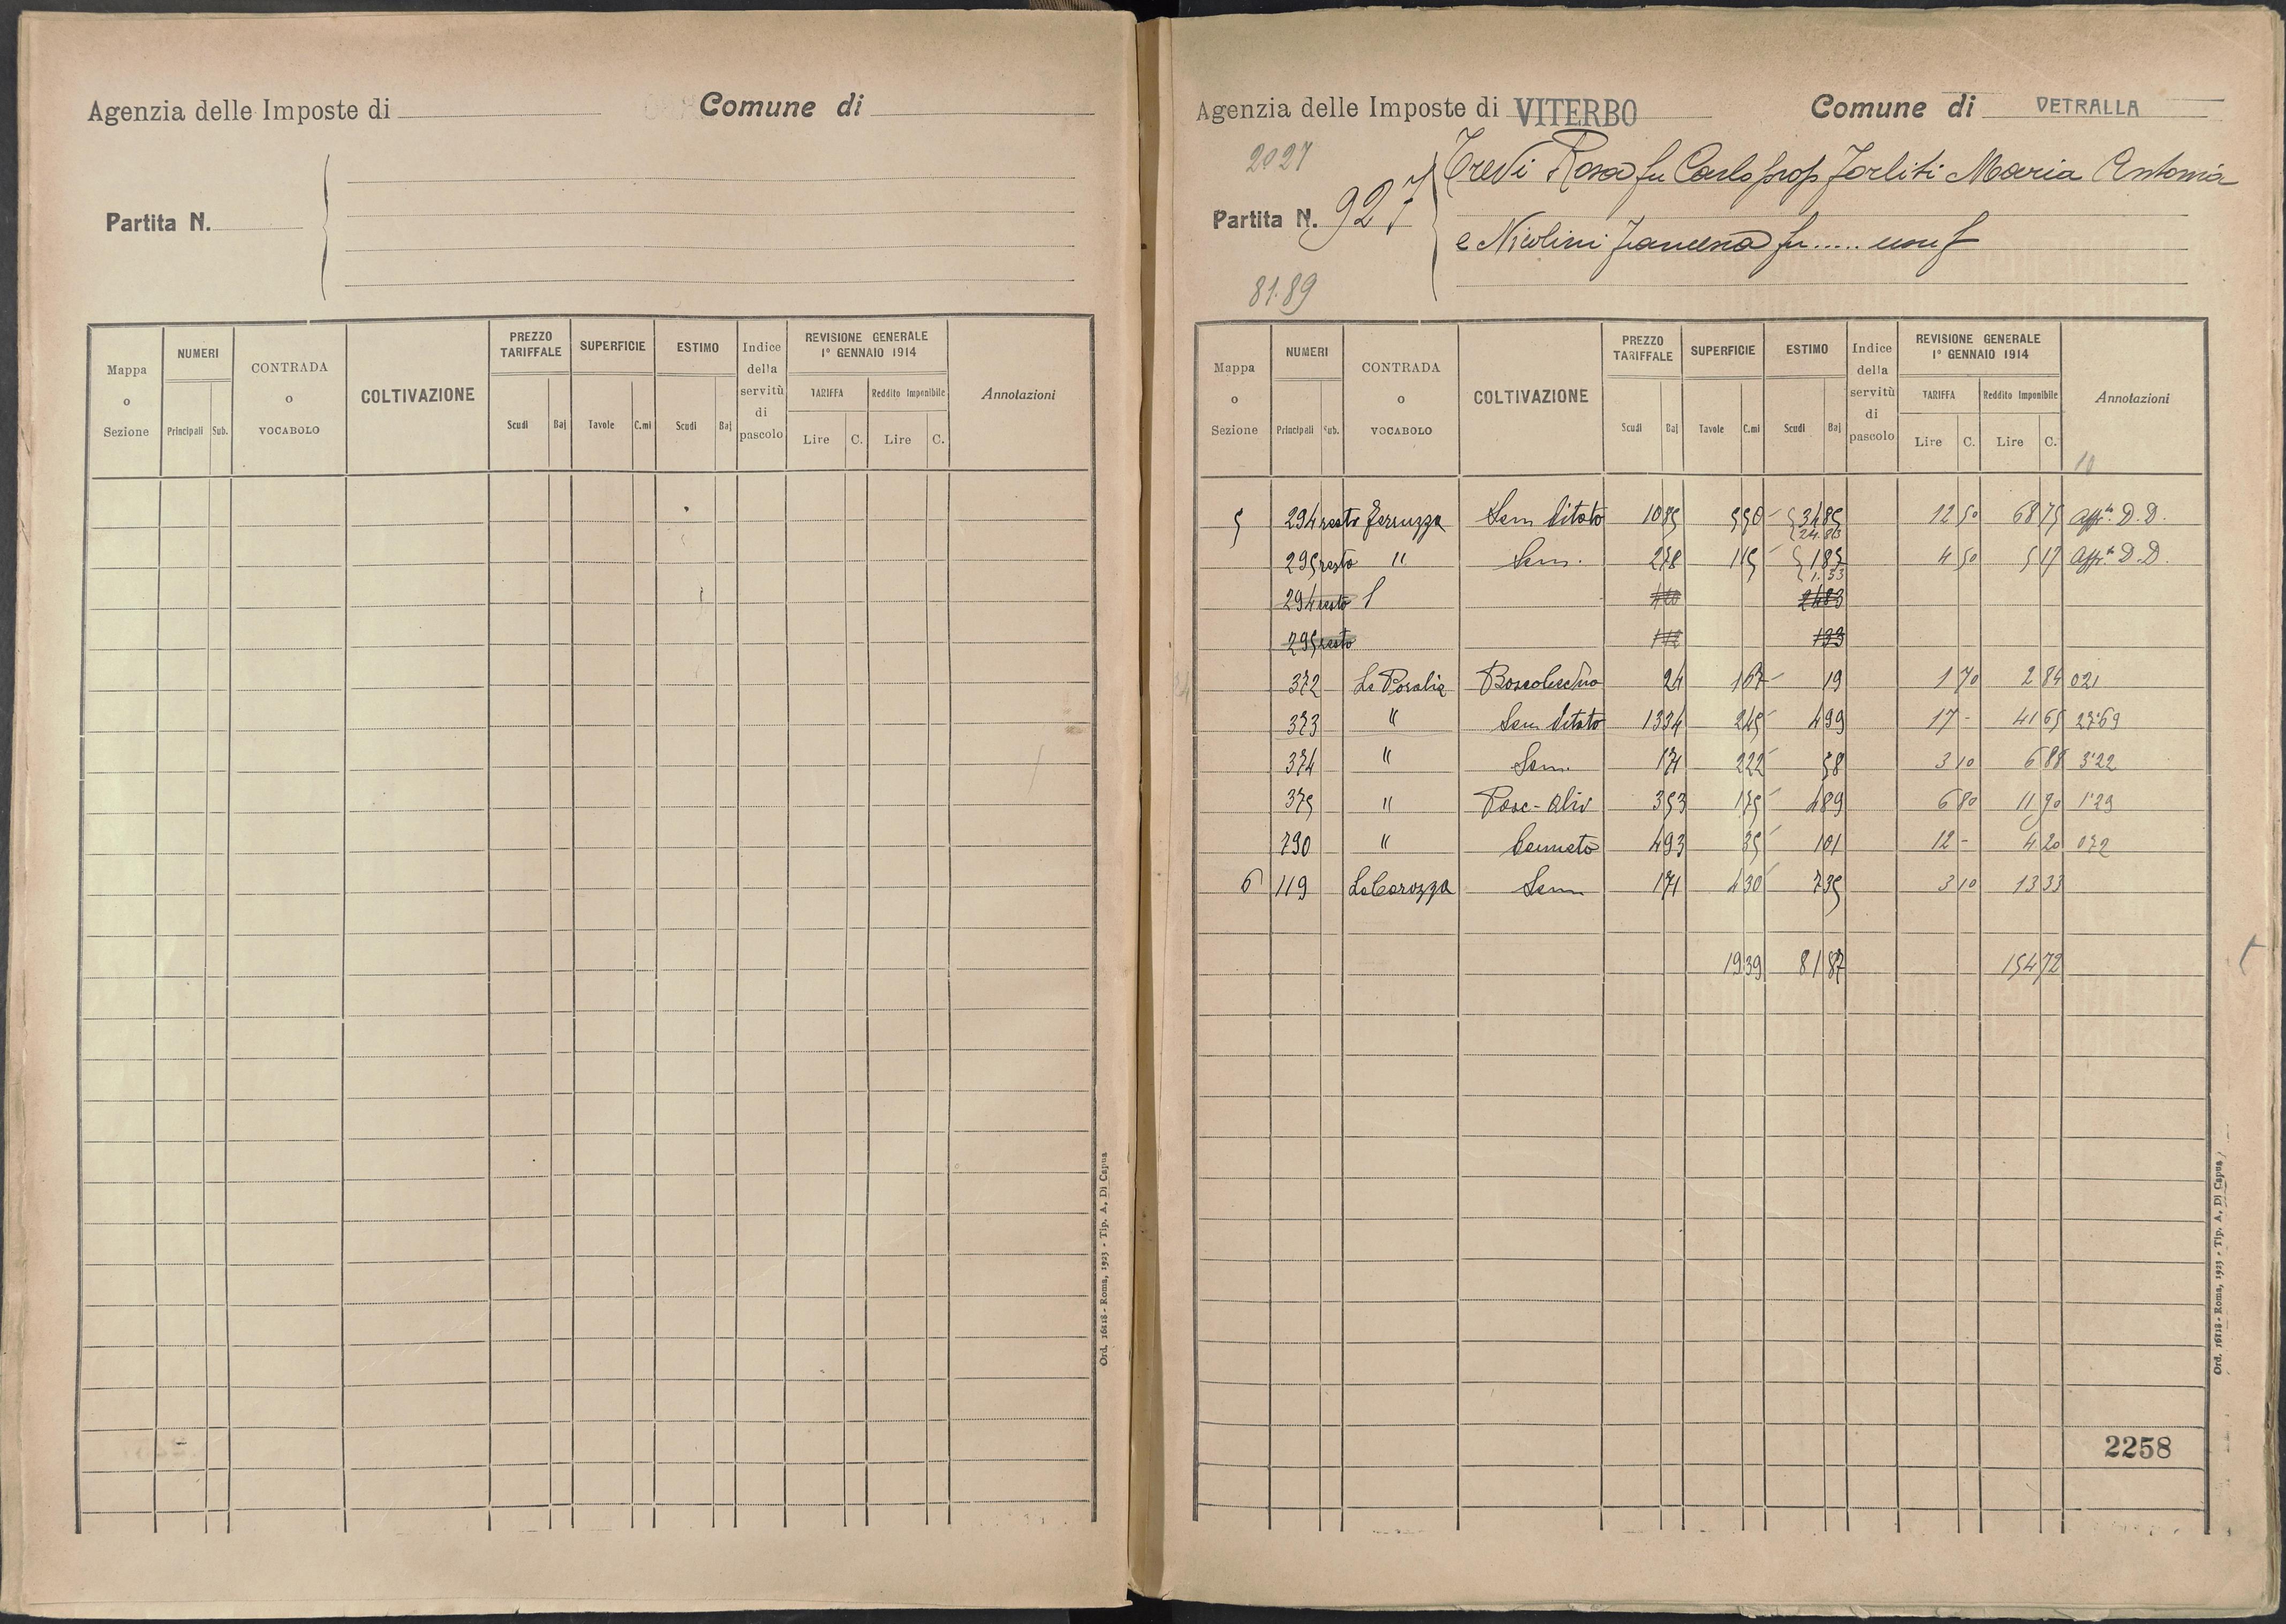 Agenzia delle Imposte di
Comune di
Partita N.
Mappa o Sezione
NUMERI
Principali Sub.
CONTRADA o VOCABOLO
COLTIVAZIONE
PREZZO TARIFFALE
Scudi Baj
SUPERFICIE
Tavole C.mi
ESTIMO
Scudi Baj
Indice della servitù di pascolo
REVISIONE GENERALE 1° GENNAIO 1914
TARIFFA Reddito Imponibile
Lire C. Lire C.
Annotazioni
Ord. 16118 - Roma, 1923 - Tip. A. Di Capua
Agenzia delle Imposte di VITERBO
Comune di VETRALLA
2027
Partita N. 927
Trevi Rosa fu Carlo prop Forliti Maria Antonia
e Nicolini Francesca fu..... usuf
81.89
Mappa o Sezione
NUMERI
Principali Sub.
CONTRADA o VOCABOLO
COLTIVAZIONE
PREZZO TARIFFALE
Scudi Baj
SUPERFICIE
Tavole C.mi
ESTIMO
Scudi Baj
Indice della servitù di pascolo
REVISIONE GENERALE 1° GENNAIO 1914
TARIFFA Reddito Imponibile
Lire C. Lire C.
Annotazioni
10
5 294 resto Ferruzza Sem Vitato 10 85 5 50 34 85 12 50 68 75 D.D.
24.83
295 resto " Sem. 2 78 1 15 1 85 4 50 5 17 D.D.
1.33
294 resto 24 83
295 resto 1 33
372 Boscoleccino 24 1 67 19 1 70 2 84 021
373 " Sem Vitato 13 34 2 45 4 99 17 - 41 65 27.69
374 " Sem. 1 71 2 22 58 3 10 6 88 3.22
375 " Pasc-Oliv 3 53 1 75 4 89 6 80 11 90 1.29
790 " Canneto 4 93 35 1 01 12 - 4 20 072
6 119 La Carozza Sem 1 71 4 30 7 35 3 10 13 33
19 39 81 87 154 72
2258
Ord. 16118 - Roma, 1923 - Tip. A. Di Capua